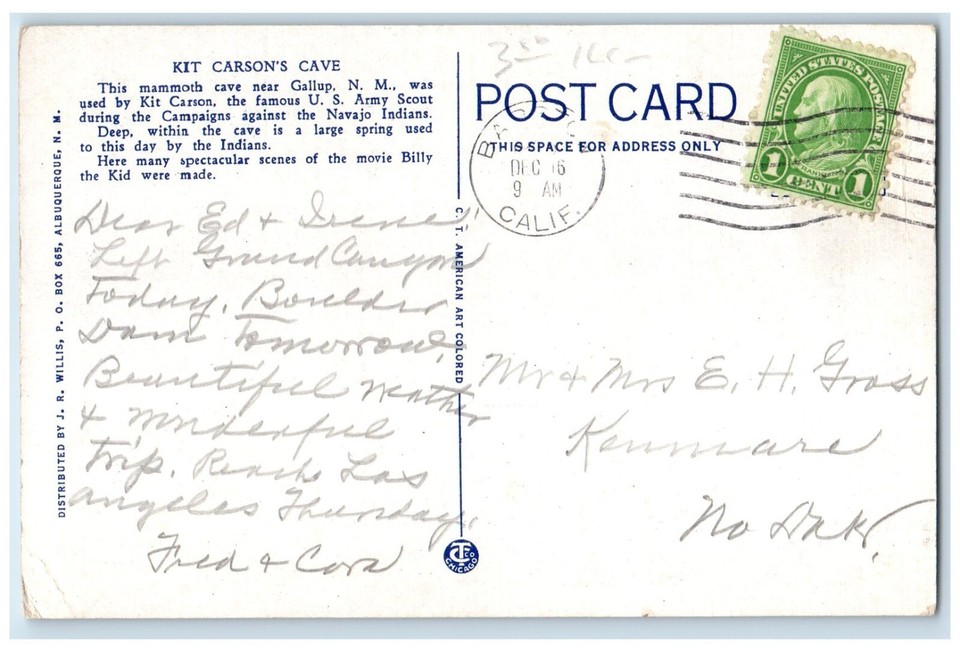 KIT CARSON'S CAVE
This mammoth cave near Gallup, N. M., was
used by Kit Carson, the famous U. S. Army Scout
during the Campaigns against the Navajo Indians.
Deep, within the cave is a large spring used
to this day by the Indians.
Here many spectacular scenes of the movie Billy
the Kid were made.
Dear Ed & Irene
Left Grand Canyon
Today. Boulder
Dam Tomorrow.
Beautiful weather
& wonderful
trip. Reach Los
Angeles Thursday.
Fred & Cora
DISTRIBUTED BY J. R. WILLIS, P. O. BOX 665, ALBUQUERQUE, N. M.
C. T. AMERICAN ART COLORED
CHICAGO
POST CARD
THIS SPACE FOR ADDRESS ONLY
DEC 16
9 AM
CALIF.
UNITED STATES POSTAGE
FRANKLIN
1 CENT 1
Mr & Mrs E. H. Gross
Kenmare
No Dak.